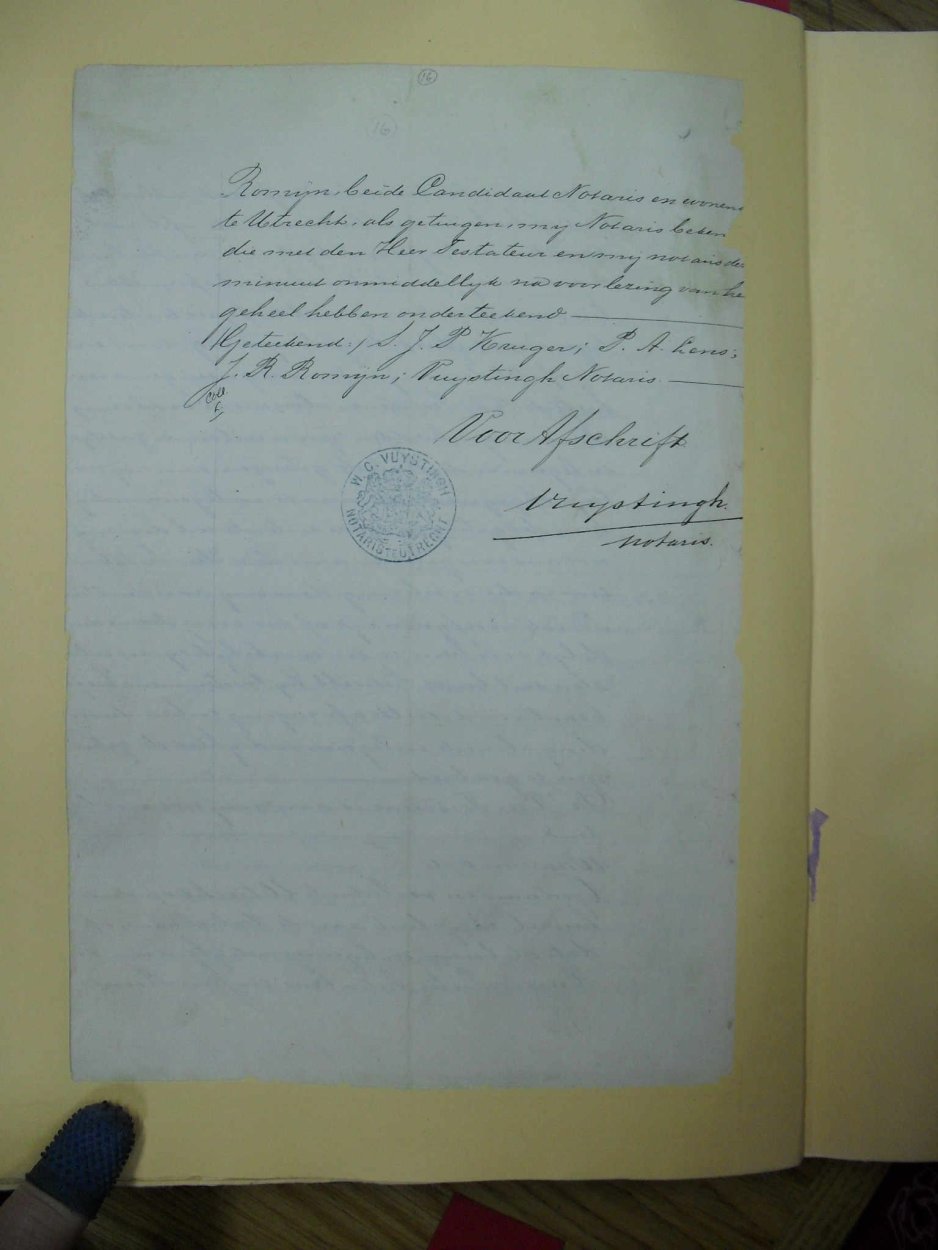 16
16
Romijn, beide Candidaat Notaris en wonen
te Utrecht, als getuigen, mij Notaris beken
die met den Heer Testateur en mij notaris de
minuut onmiddellijk na voorlezing van he
geheel hebben onderteekend
/Geteekend:/ S. J. P Kruger; P. A. Lens;
J. R. Romijn; Vuystingh Notaris.
Coll.
Voor Afschrift
W. C. VUYSTINGH
NOTARIS TE UTRECHT
Vuystingh
notaris.